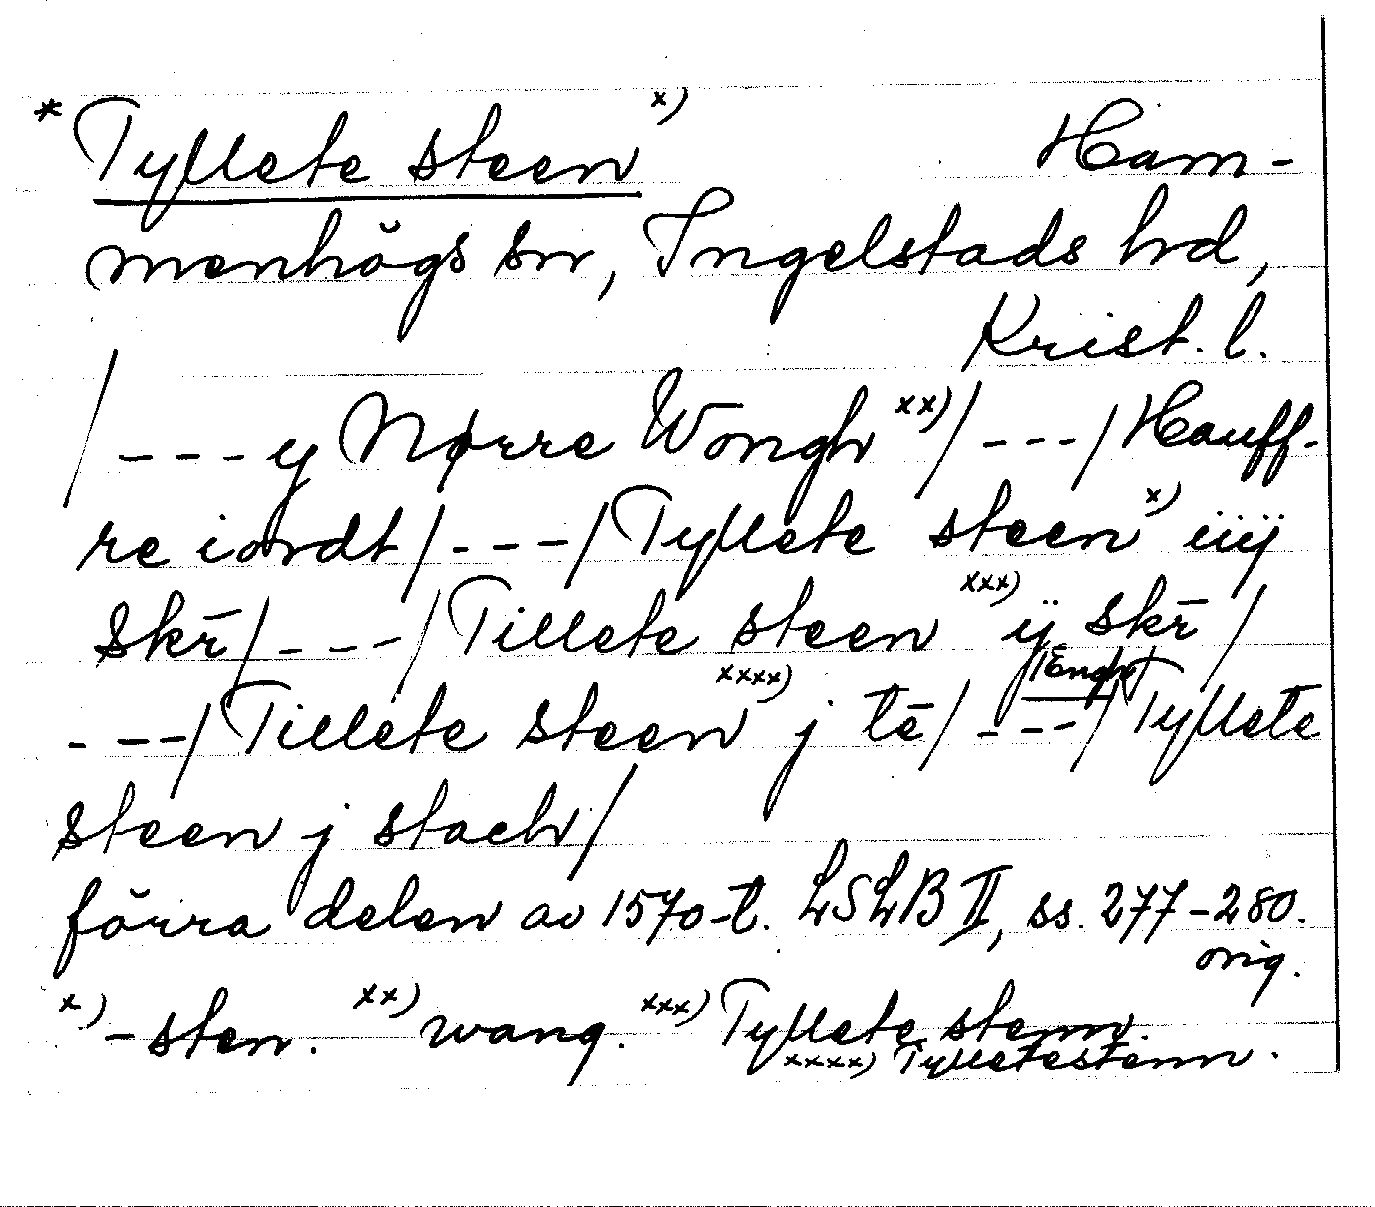 * Tyllete steen x) Ham-
menhögs sn, Ingelstads hd,
Krist. l.
/---y Nørre Wongh xx)/---/Hauff-
re iordt/---/Tyllete steen x) iiij
skr̄/---/Tillete steen xxx) ij skr̄/
---/Tillete steen xxxx) j tē/---/Engh/Tyllete
steen j stach/
förra delen av 1570-t. LSLB II, ss. 277-280.
orig.
x) -sten. xx) wang. xxx) Tyllete stenn.
xxxx) Tylletestenn.